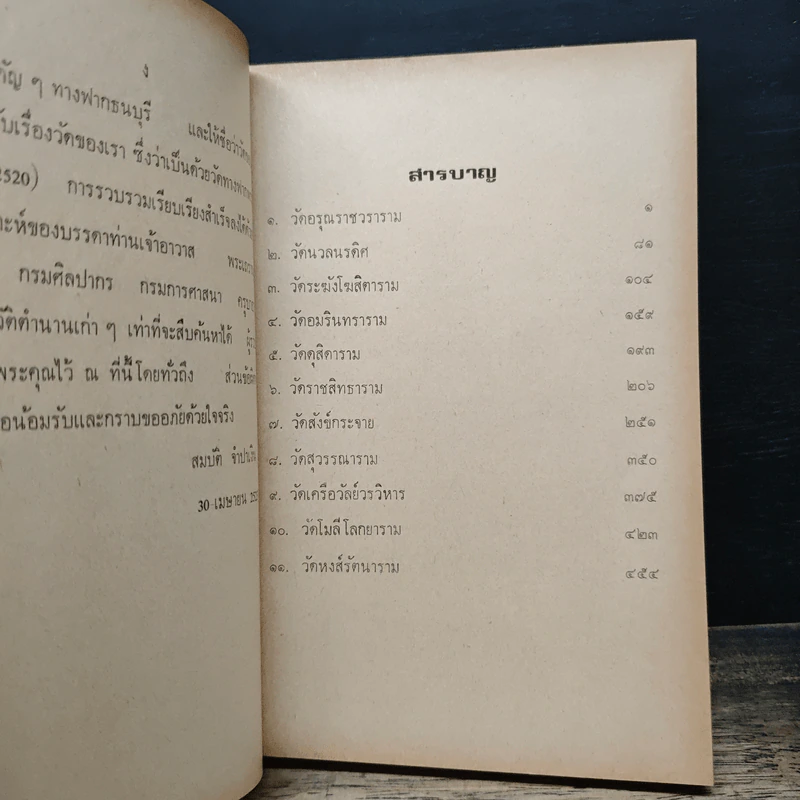 ง
ๆ ทางฟากธนบุรี และให้ชื่อว่า
เรื่องวัดของเรา ซึ่งว่าเป็นด้วยวัดทางฟาก
2520) การรวบรวมเรียบเรียงสำเร็จลงได้ด้วย
ของบรรดาท่านเจ้าอาวาส
กรมศิลปากร กรมการศาสนา
ตำนานเก่า ๆ เท่าที่จะสืบค้นหาได้
พระคุณไว้ ณ ที่นี้โดยทั่วถึง
น้อมรับและกราบขออภัยด้วยใจจริง
สมบัติ
30 เมษายน
สารบาญ
๑. วัดอรุณราชวราราม ๑
๒. วัดนวลนรดิศ ๘๑
๓. วัดระฆังโฆสิตาราม ๑๐๔
๔. วัดอมรินทราราม ๑๕๙
๕. วัดดุสิดาราม ๑๙๓
๖. วัดราชสิทธาราม ๒๐๖
๗. วัดสังข์กระจาย ๒๕๑
๘. วัดสุวรรณาราม ๓๕๐
๙. วัดเครือวัลย์วรวิหาร ๓๗๕
๑๐. วัดโมลีโลกยาราม ๔๒๓
๑๑. วัดหงส์รัตนาราม ๔๕๔